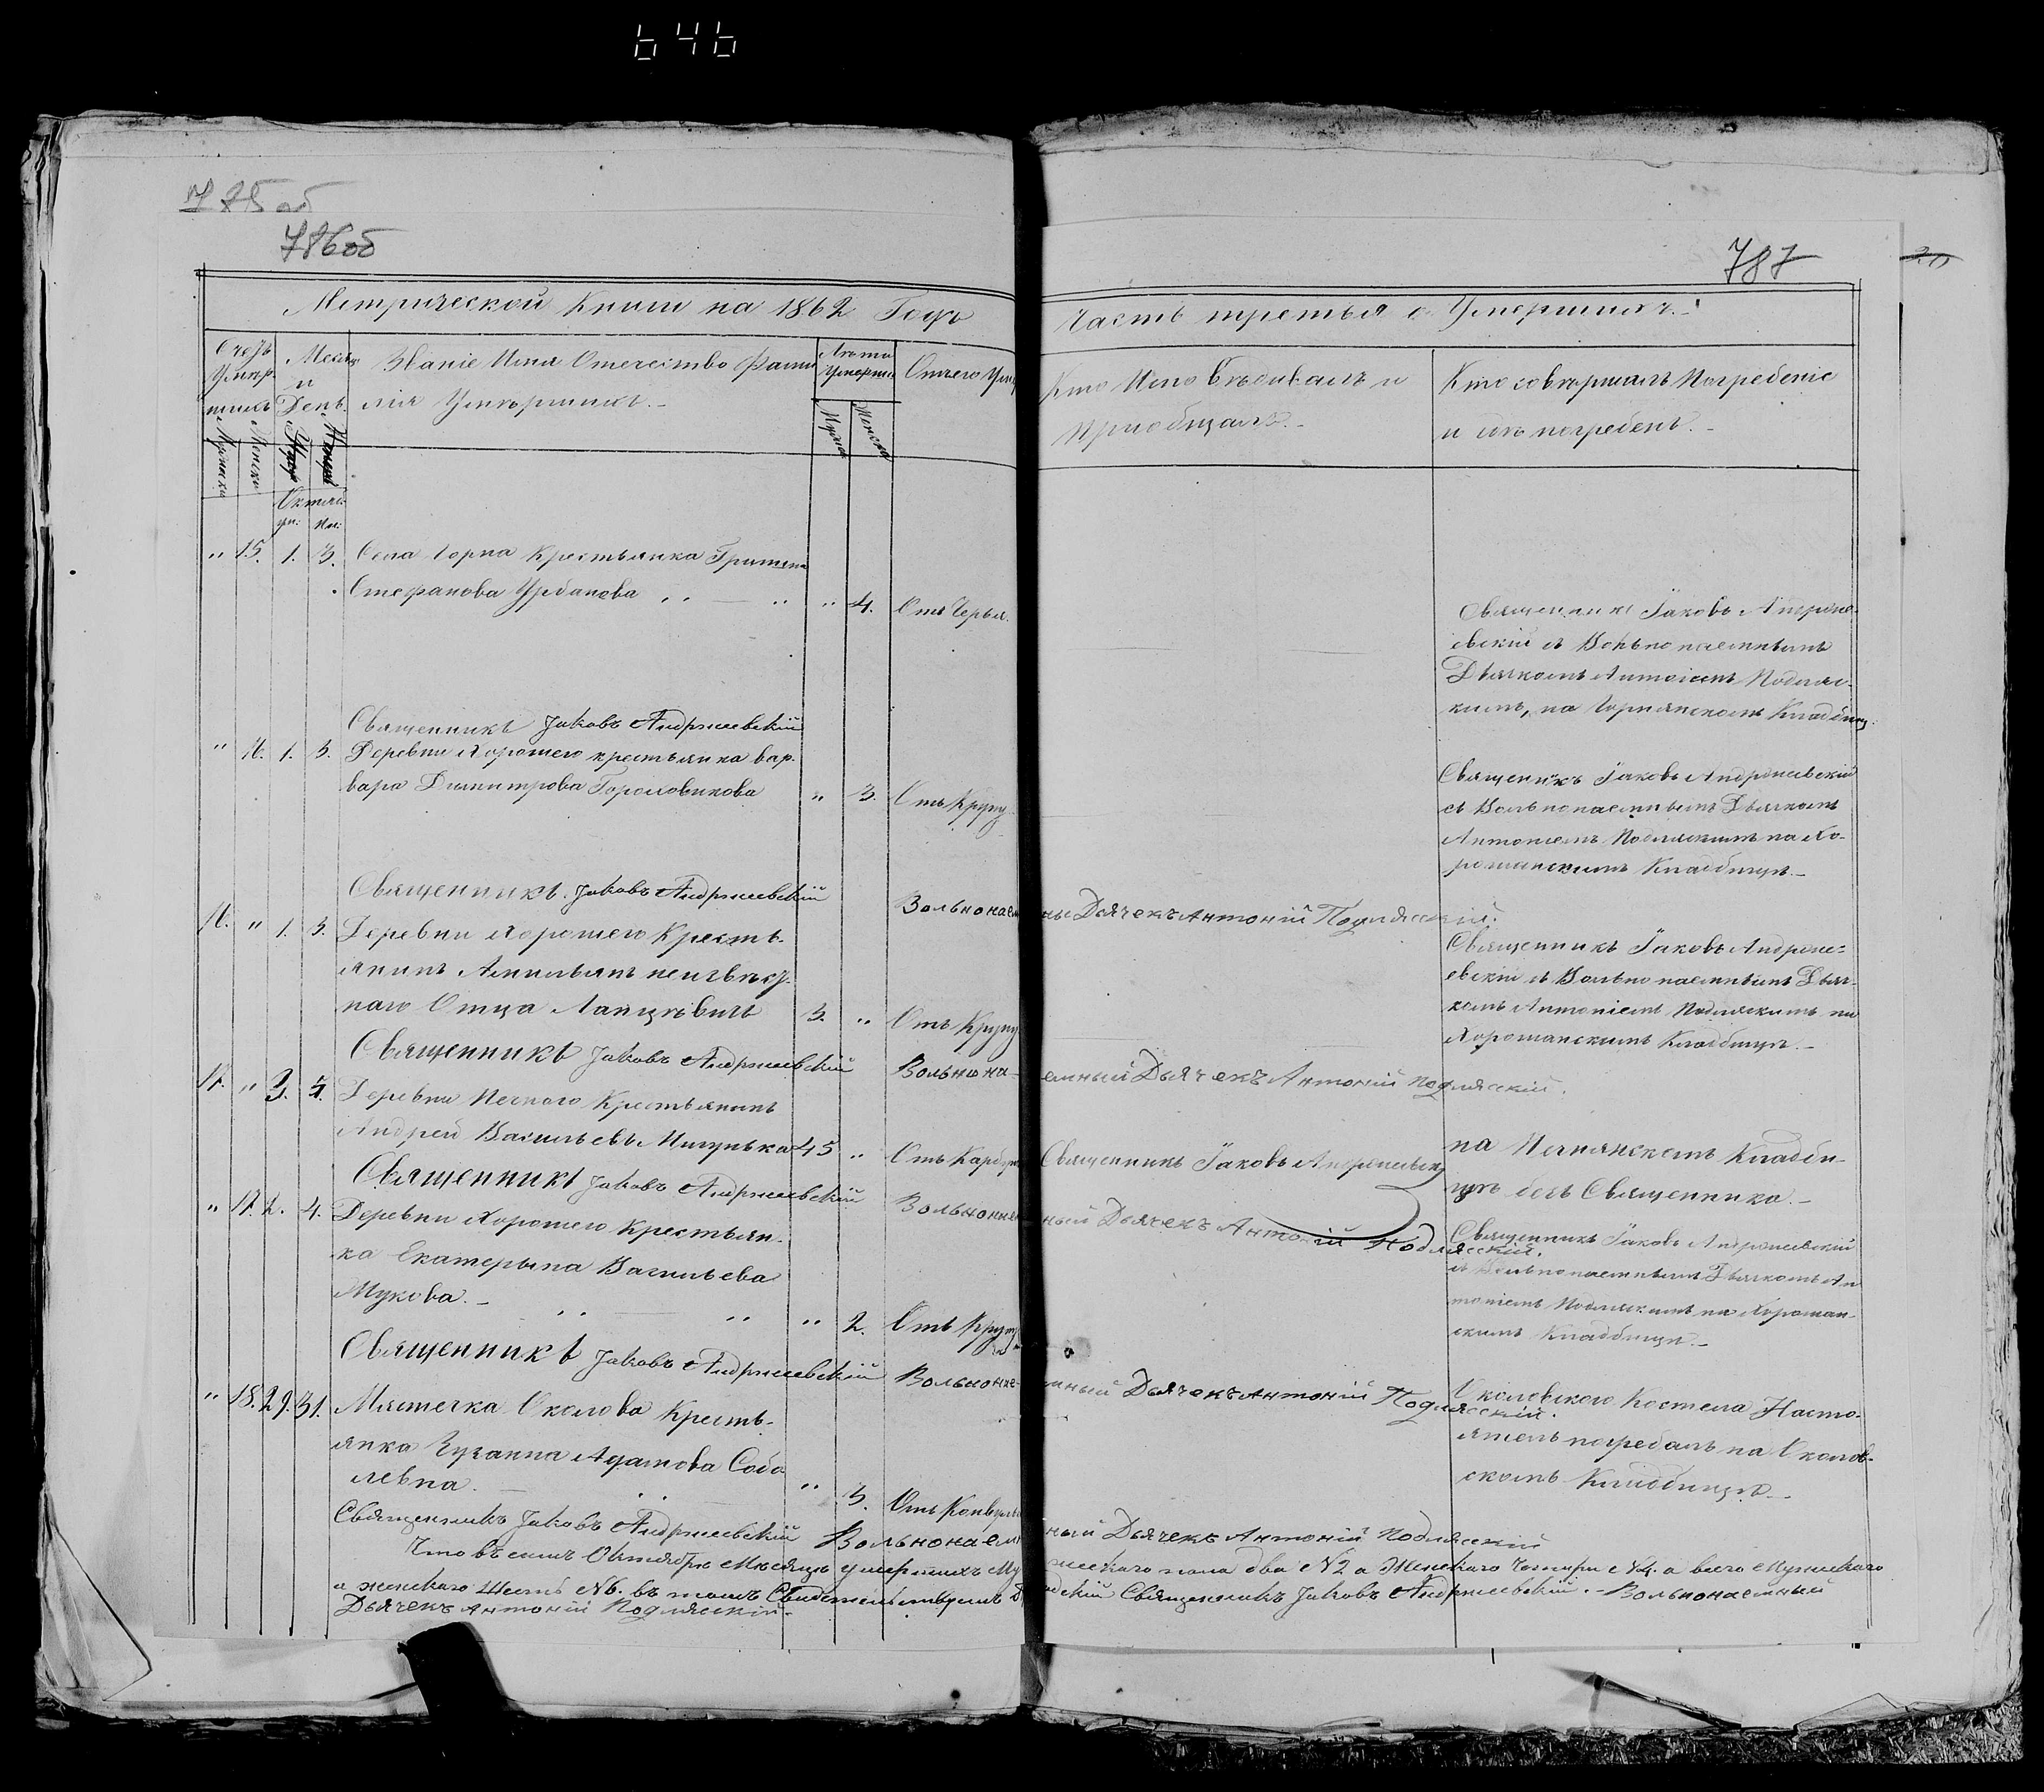 646
786об
787
Метрической Книги на 1862 Годъ
Часть третья о Умершихъ.
Счетъ Умер-шихъ
Месяцъ и День.
Званіе Имя Отечество Фами-
лія Умершихъ.
Лѣта Умерш.
Отчего Уме
Кто Исповѣдывалъ и
Приобщалъ.
Кто совершалъ Погребеніе
и гдѣ погребенъ.
Мужеска
Женска
Октяб.
ум: по:
" 15. 1. 3. Села Горна Крестьянка
Стефанова Урбанова " — " " 4. Отъ
Священникъ Іаковъ Андрше-
евскій съ Вольнонаемнымъ
Дьячкомъ Антоніемъ Подляс-
кимъ, на Горнянскомъ Кладбищ
Священникъ Іаковъ Андршеевскій
" 16. 1. 3. Деревни Хорошего крестьянка Вар-
вара Димитрова " 3. Отъ Крупу
Священникъ Іаковъ Андршеевскій
съ Вольнонаемнымъ Дьячкомъ
Антоніемъ Подляскимъ на Хо-
рошанскимъ Кладбищѣ.
Священникъ Іаковъ Андршеевскій Вольнонаемный Дьячекъ Антоній Подляскій.
" 1. 3. Деревни Хорошего Кресть-
янинъ неизвѣст-
наго Отца 3. " Отъ Крупу
Священникъ Іаковъ Андрше-
евскій съ Вольнонаемнымъ Дьяч-
комъ Антоніемъ Подляскимъ на
Хорошанскимъ Кладбищѣ.
Священникъ Іаковъ Андршеевскій Вольнонаемный Дьячекъ Антоній Подляскій.
" 3. Деревни Крестьянинъ
Андрей Васильевъ 45 " Отъ
Священникъ Іаковъ Андршеевскій
на Кладби-
щѣ безъ Священника.
Священникъ Іаковъ Андршеевскій Вольнонаемный Дьячекъ Антоній Подляскій.
" 17. 2. 4. Деревни Хорошего Крестьян-
ка Екатерына Васильева
Мукова. " " " 2. Отъ Крупу
Священникъ Іаковъ Андршеевскій
съ Вольнонаемнымъ Дьячкомъ Ан
тоніемъ Подляскимъ на Хорошан-
скимъ Кладбищѣ.
Священникъ Іаковъ Андршеевскій Вольнонаемный Дьячекъ Антоній Подляскій.
" 18. 29. 31. Мястечка Околова Кресть-
янка Зузанна Адамова Собо
левна. " 3. Отъ Конвульс
Околовского Костела Насто-
ятель погребалъ на Околов-
скомъ Кладбищѣ.
Священникъ Іаковъ Андршеевскій Вольнонаемный Дьячекъ Антоній Подляскій
Что въ семъ Октябрѣ Мѣсяцѣ умершихъ Мужескаго пола два N2 а Женскаго Четыри N4. а всего Мужескаго
а женскаго Шесть N6. въ томъ Свидѣтельствуемъ Священникъ Іаковъ Андршеевскій. Вольнонаемный
Дьячекъ Антоній Подляскій.